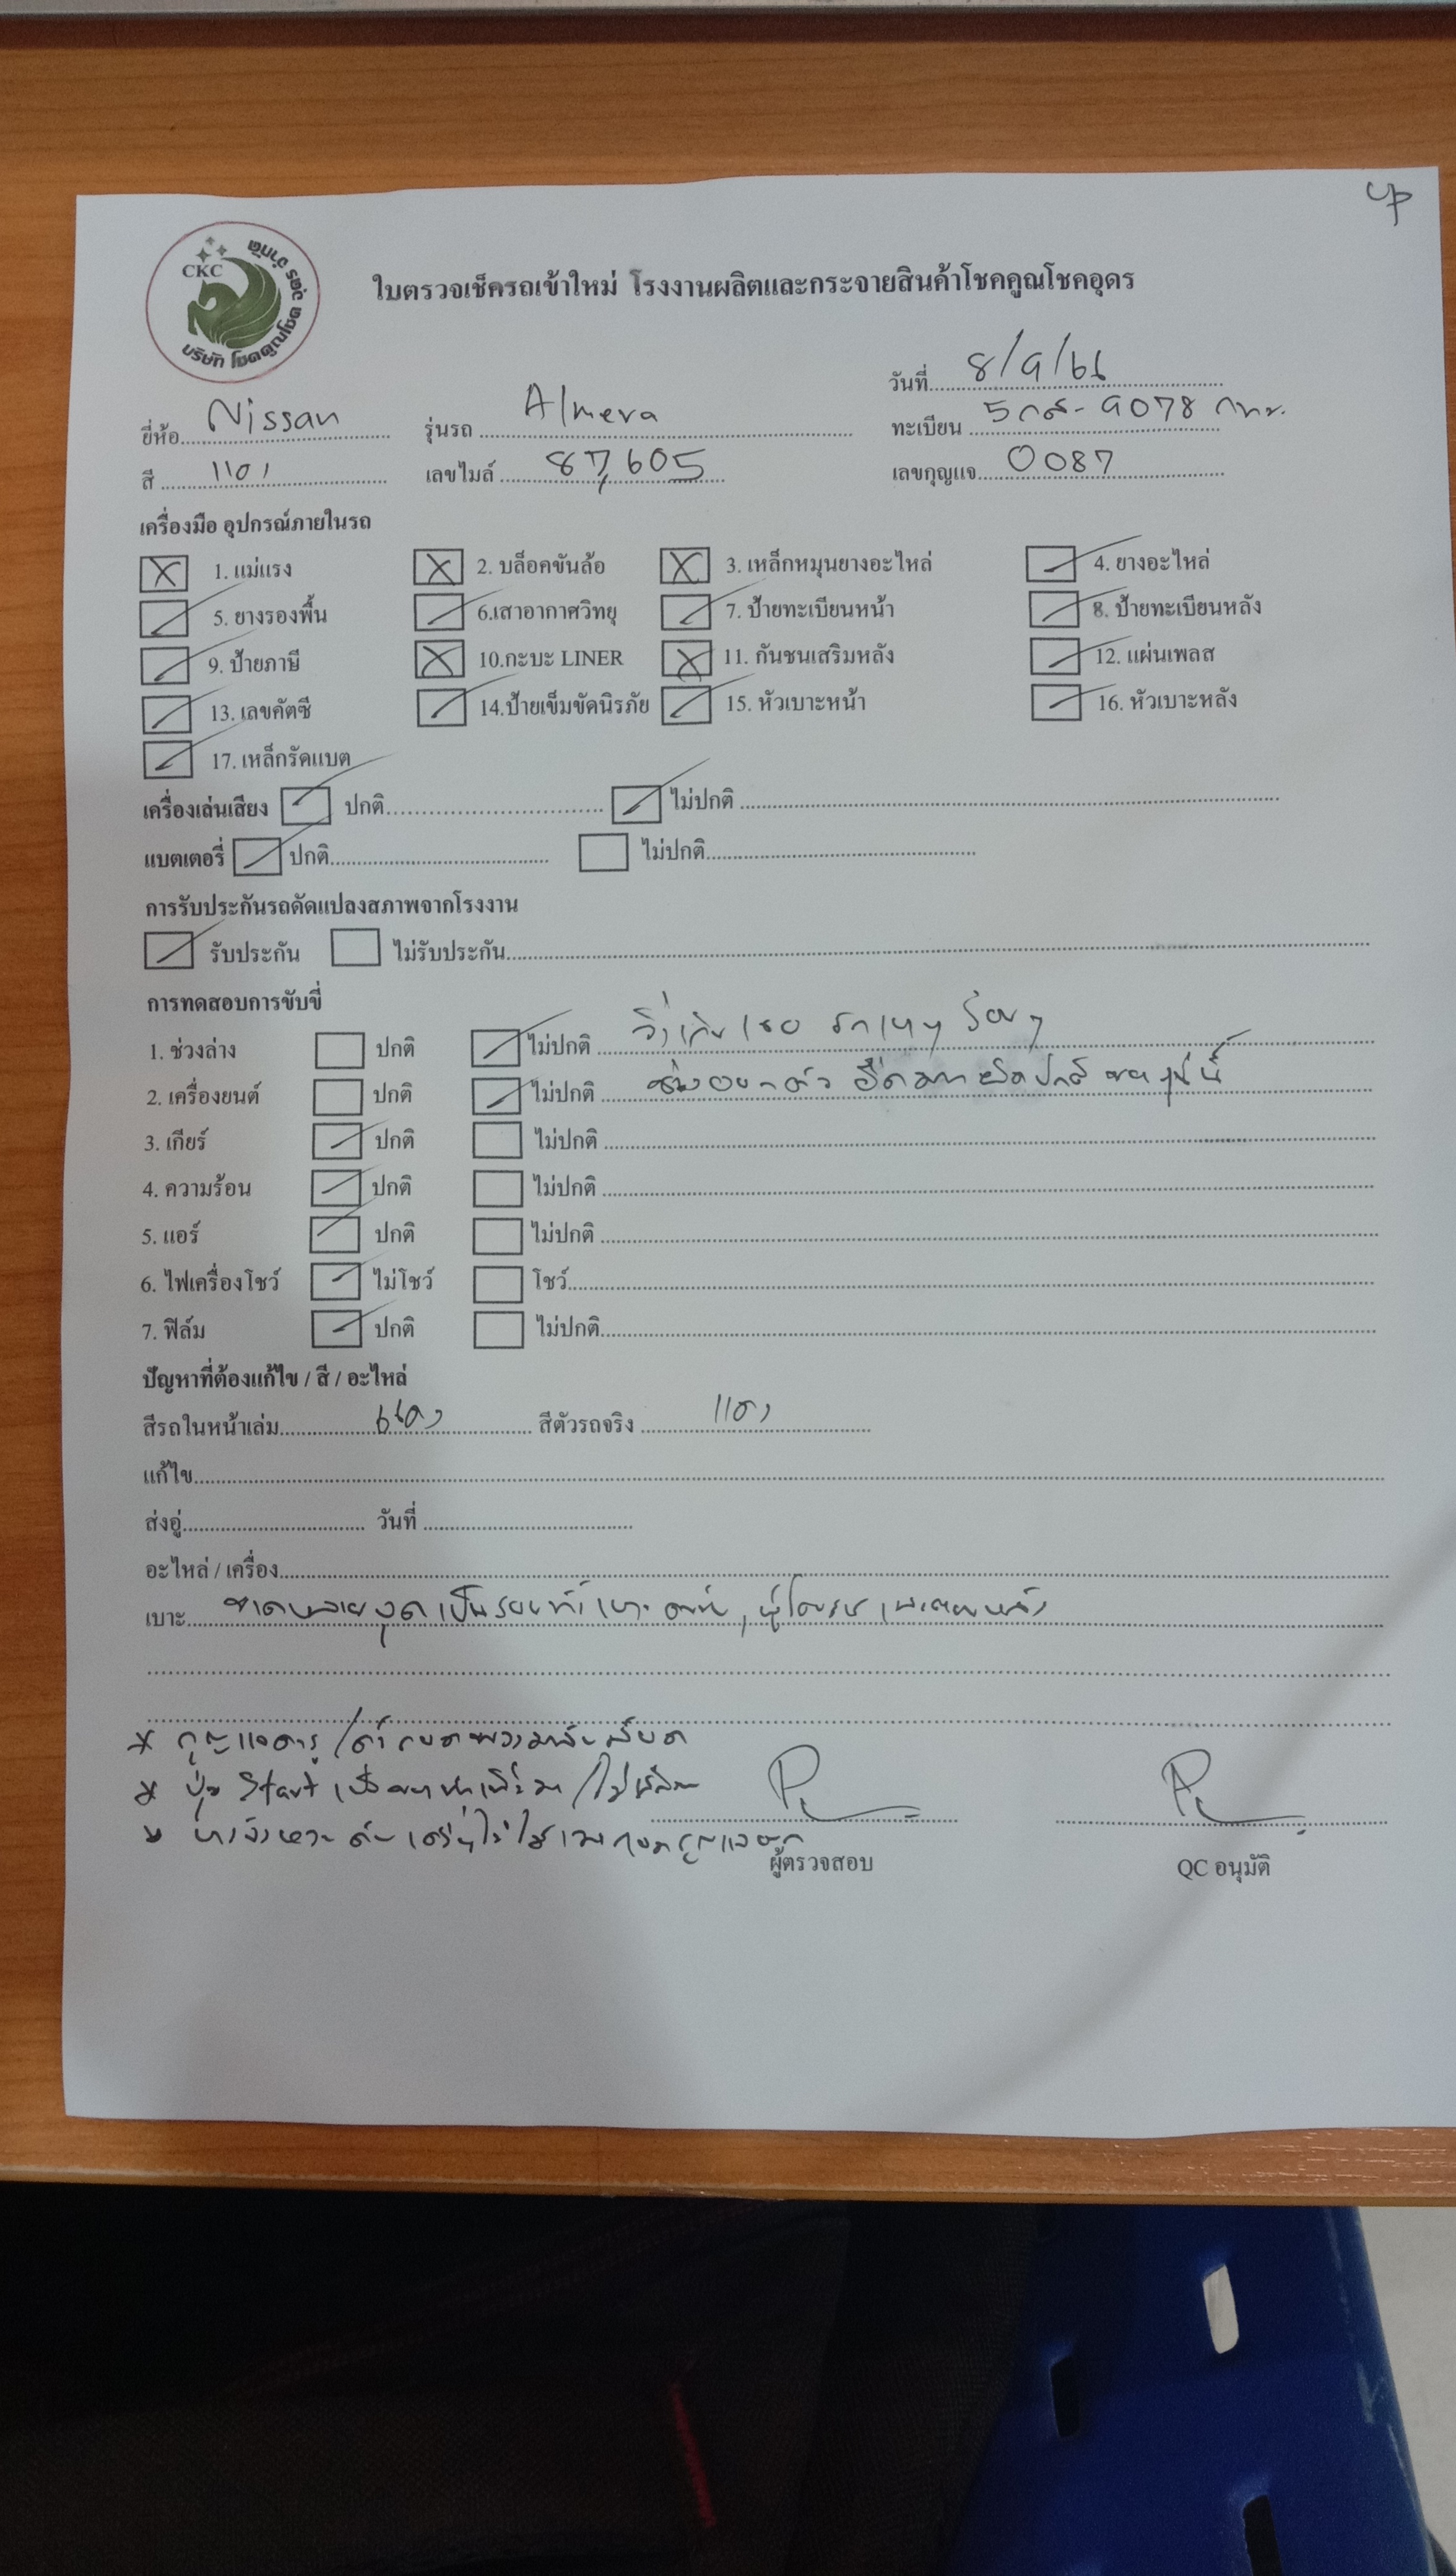 CKC
บริษัท โชคคูณโชค อุดร จำกัด
up
ใบตรวจเช็ครถเข้าใหม่ โรงงานผลิตและกระจายสินค้าโชคคูณโชคอุดร
วันที่ 8/9/66
ยี่ห้อ Nissan รุ่นรถ Almera ทะเบียน 5กส-9078 กทม.
สี แดง เลขไมล์ 87,605 เลขกุญแจ 0087
เครื่องมือ อุปกรณ์ภายในรถ
1. แม่แรง 2. บล็อคขันล้อ 3. เหล็กหมุนยางอะไหล่ 4. ยางอะไหล่
5. ยางรองพื้น 6.เสาอากาศวิทยุ 7. ป้ายทะเบียนหน้า 8. ป้ายทะเบียนหลัง
9. ป้ายภาษี 10.กะบะ LINER 11. กันชนเสริมหลัง 12. แผ่นเพลส
13. เลขคัตซี 14.ป้ายเข็มขัดนิรภัย 15. หัวเบาะหน้า 16. หัวเบาะหลัง
17. เหล็กรัดแบต
เครื่องเล่นเสียง ปกติ ไม่ปกติ
แบตเตอรี่ ปกติ ไม่ปกติ
การรับประกันรถดัดแปลงสภาพจากโรงงาน
รับประกัน ไม่รับประกัน
การทดสอบการขับขี่
1. ช่วงล่าง ปกติ ไม่ปกติ
2. เครื่องยนต์ ปกติ ไม่ปกติ
3. เกียร์ ปกติ ไม่ปกติ
4. ความร้อน ปกติ ไม่ปกติ
5. แอร์ ปกติ ไม่ปกติ
6. ไฟเครื่องโชว์ ไม่โชว์ โชว์
7. ฟิล์ม ปกติ ไม่ปกติ
ปัญหาที่ต้องแก้ไข / สี / อะไหล่
สีรถในหน้าเล่ม แดง สีตัวรถจริง แดง
แก้ไข
ส่งอู่ วันที่
อะไหล่ / เครื่อง
เบาะ
ปุ่ม Start
ผู้ตรวจสอบ QC อนุมัติ